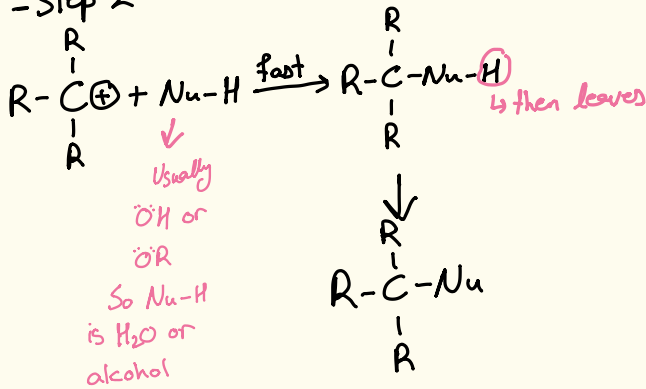 - Step 2
R
R-C⊕ + Nu-H fast →
R
R
R-C-Nu-H
↳ then leaves
R
↓
Usually
ÖH or
ÖR
So Nu-H
is H₂O or
alcohol
↓
R
R-C-Nu
R